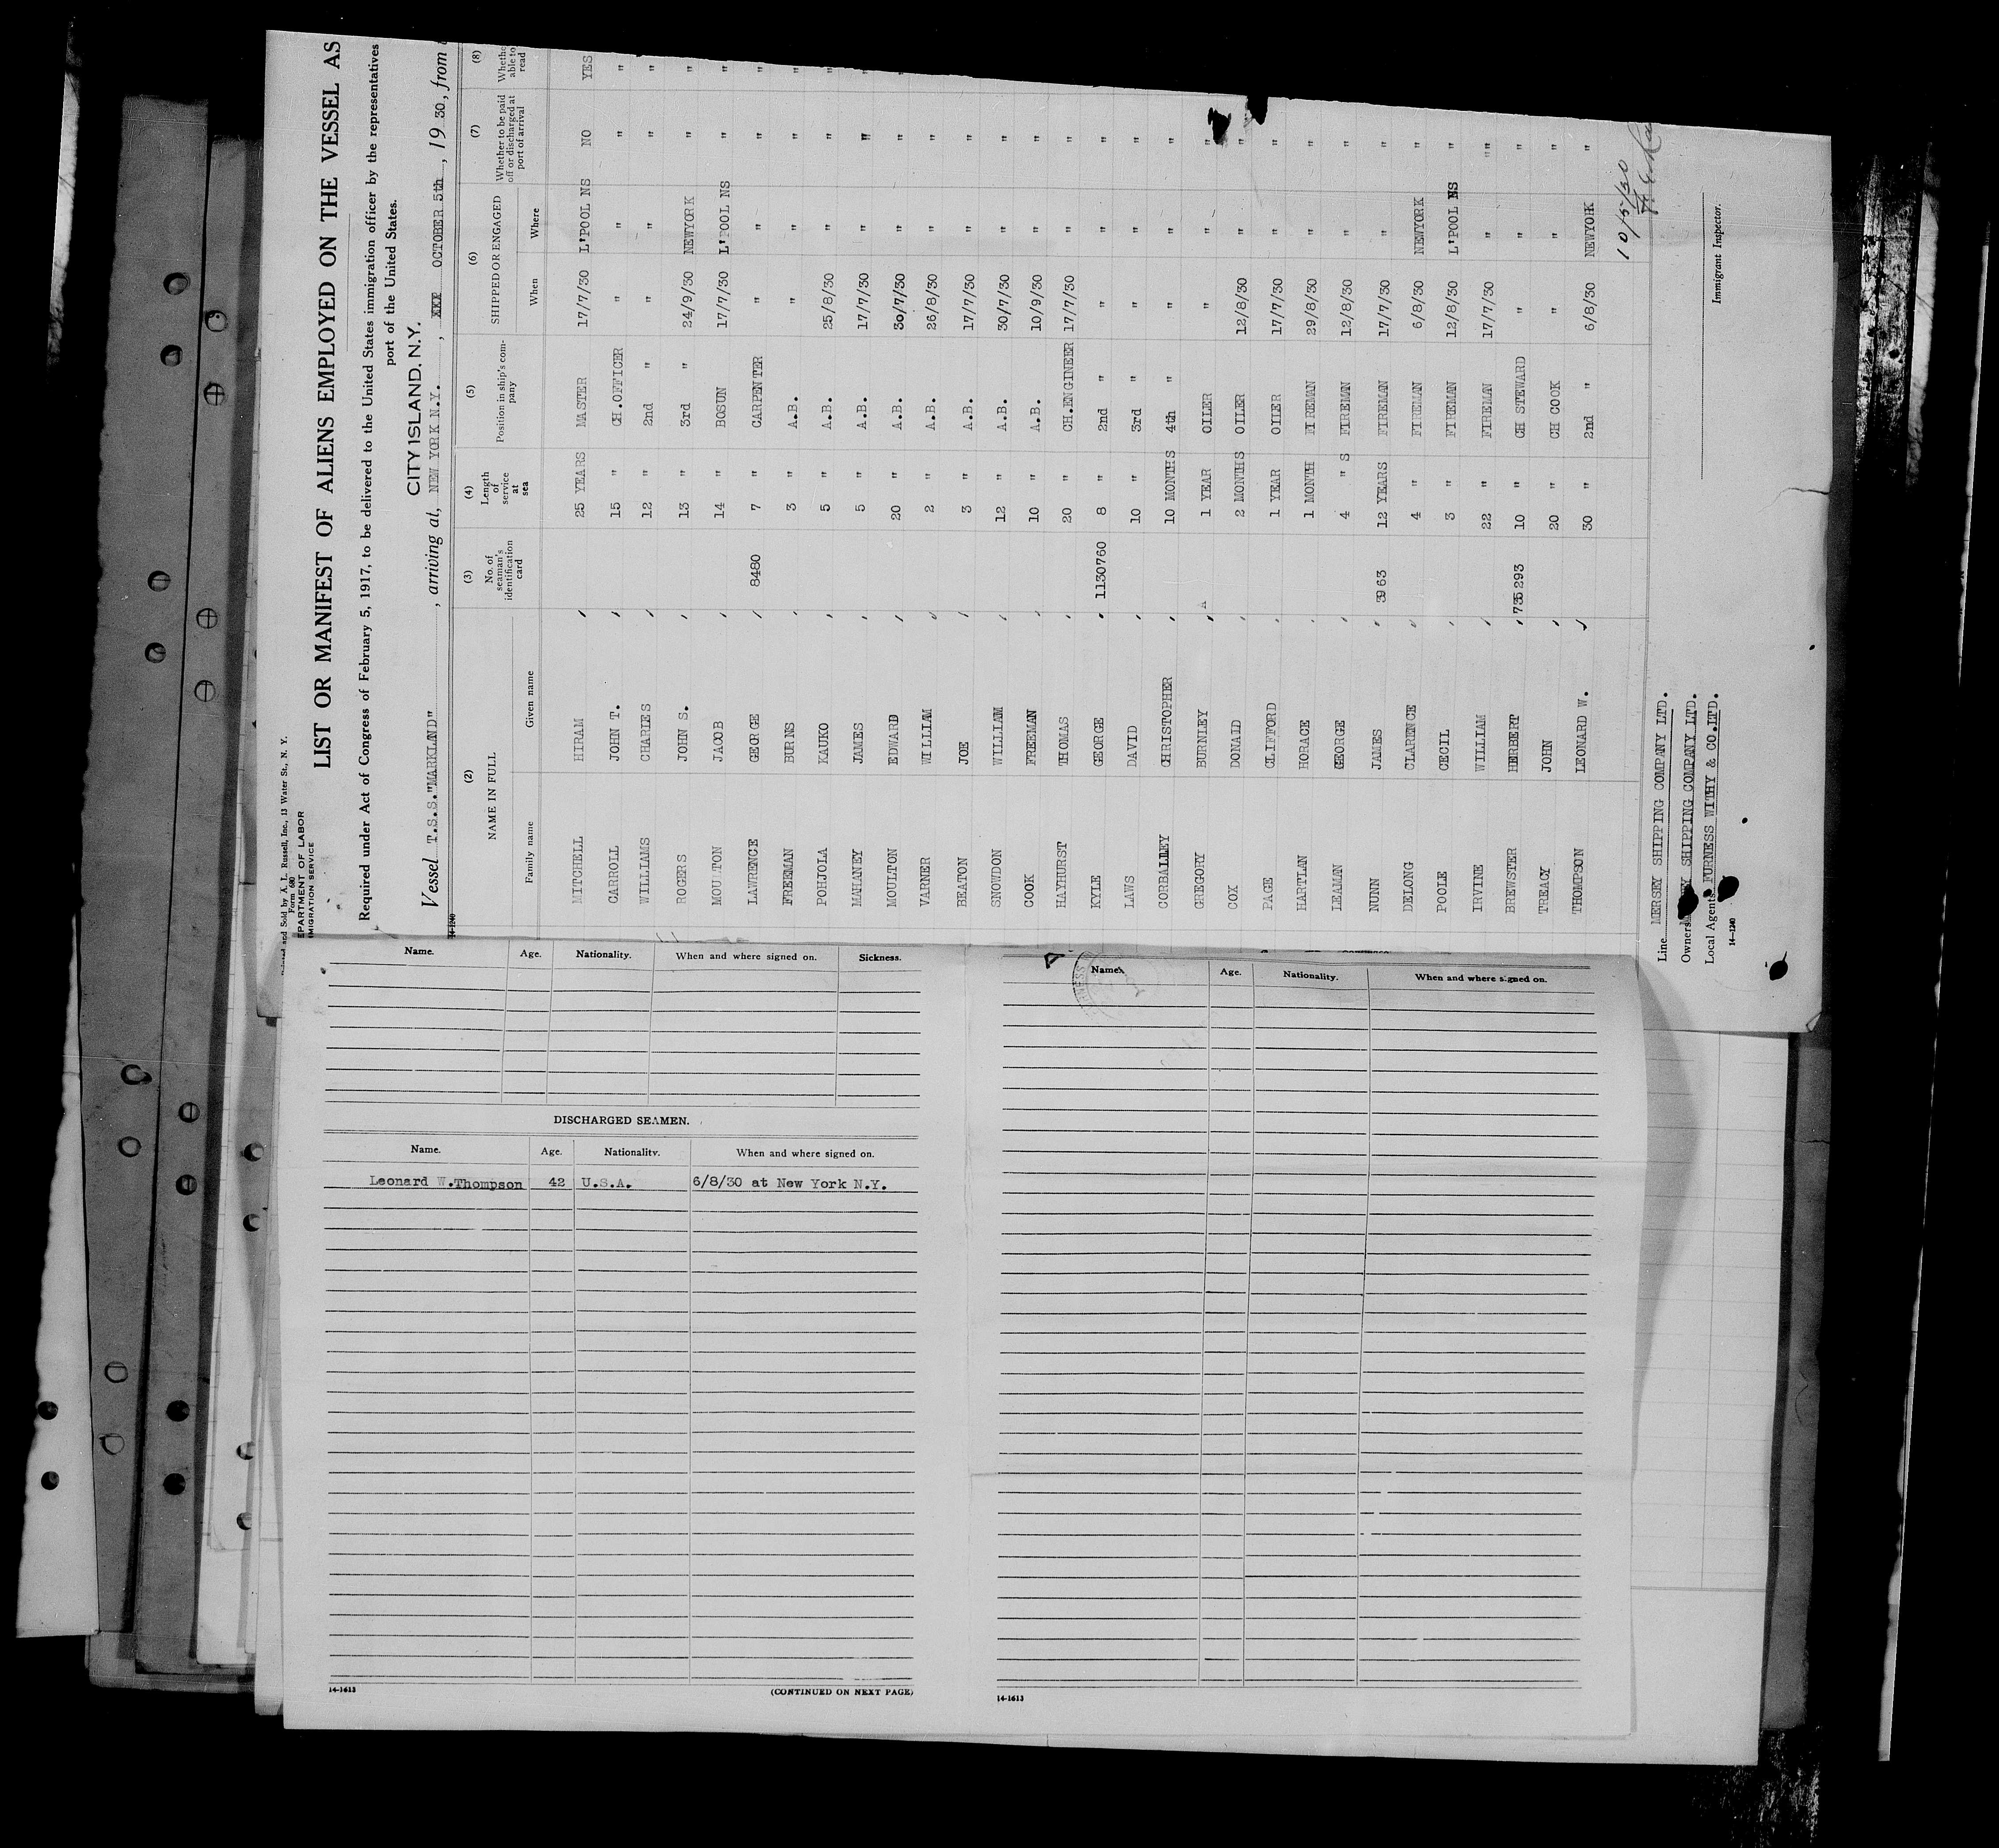 and Sold by A. L. Russell, Inc., 13 Water St., N. Y.
Form 680
EPARTMENT OF LABOR
MIGRATION SERVICE
LIST OR MANIFEST OF ALIENS EMPLOYED ON THE VESSEL AS
Required under Act of Congress of February 5, 1917, to be delivered to the United States immigration officer by the representatives
port of the United States.
CITY ISLAND. N.Y.
Vessel T.S.S."MARKLAND", arriving at, NEW YORK N.Y., OCTOBER 5th, 19 30, from
14-1240
(2) (3) (4) (5) (6) (7) (8)
NAME IN FULL No. of seaman's identification card Length of service at sea Position in ship's company SHIPPED OR ENGAGED Whether to be paid off or discharged at port of arrival Whethe able to read
Family name Given name When Where
MITCHELL HIRAM 25 YEARS MASTER 17/7/30 L'POOL NS NO YES
CARROLL JOHN T. 15 " CH.OFFICER " " " "
WILLIAMS CHARLES 12 " 2nd " " " " "
ROGERS JOHN S. 13 " 3rd " 24/9/30 NEWYORK " "
MOULTON JACOB 14 " BOSUN 17/7/30 L'POOL NS " "
LAWRENCE GEORGE 8480 7 " CARPENTER " " " "
FREEMAN BURNS 3 " A.B. " " " "
POHJOLA KAUKO 5 " A.B. 25/8/30 " " "
MAHANEY JAMES 5 " A.B. 17/7/30 " " "
MOULTON EDWARD 20 " A.B. 30/7/30 " " "
VARNER WILLIAM 2 " A.B. 26/8/30 " "
BEATON JOE 3 " A.B. 17/7/30 " "
SNOWDON WILLIAM 12 " A.B. 30/7/30 " "
COOK FREEMAN 10 " A.B. 10/9/30 " "
HAYHURST THOMAS 20 " CH.ENGINEER 17/7/30 " "
KYLE GEORGE 1130760 8 " 2nd " " " "
LAWS DAVID 10 " 3rd " " " "
CORBALLEY CHRISTOPHER 10 MONTHS 4th " " " "
GREGORY BURNLEY 1 YEAR OILER " " "
COX DONALD 2 MONTHS OILER 12/8/30 " "
PAGE CLIFFORD 1 YEAR OILER 17/7/30 " "
HARTLAN HORACE 1 MONTH FIREMAN 29/8/30 " "
LEAMAN GEORGE 4 " S FIREMAN 12/8/30 " "
NUNN JAMES 3963 12 YEARS FIREMAN 17/7/30 " "
DELONG CLARENCE 4 " FIREMAN 6/8/30 NEWYORK "
POOLE CECIL 3 " FIREMAN 12/8/30 L'POOL NS "
IRVINE WILLIAM 22 " FIREMAN 17/7/30 " ""
BREWSTER HERBERT 735293 10 " CH STEWARD " " "
TREACY JOHN 20 " CH COOK " " "
THOMPSON LEONARD W. 30 " 2nd " 6/8/30 NEWYORK "
10/5/30
Line MERSEY SHIPPING COMPANY LTD.
Owners SHIPPING COMPANY LTD.
Local Agents FURNESS WITHY & CO.LTD.
Immigrant Inspector.
14-1240
Name. Age. Nationality. When and where signed on. Sickness.
DISCHARGED SEAMEN.
Name. Age. Nationality. When and where signed on.
Leonard W.Thompson 42 U.S.A. 6/8/30 at New York N.Y.
14-1613 (CONTINUED ON NEXT PAGE)
Name. Age. Nationality. When and where signed on.
14-1613